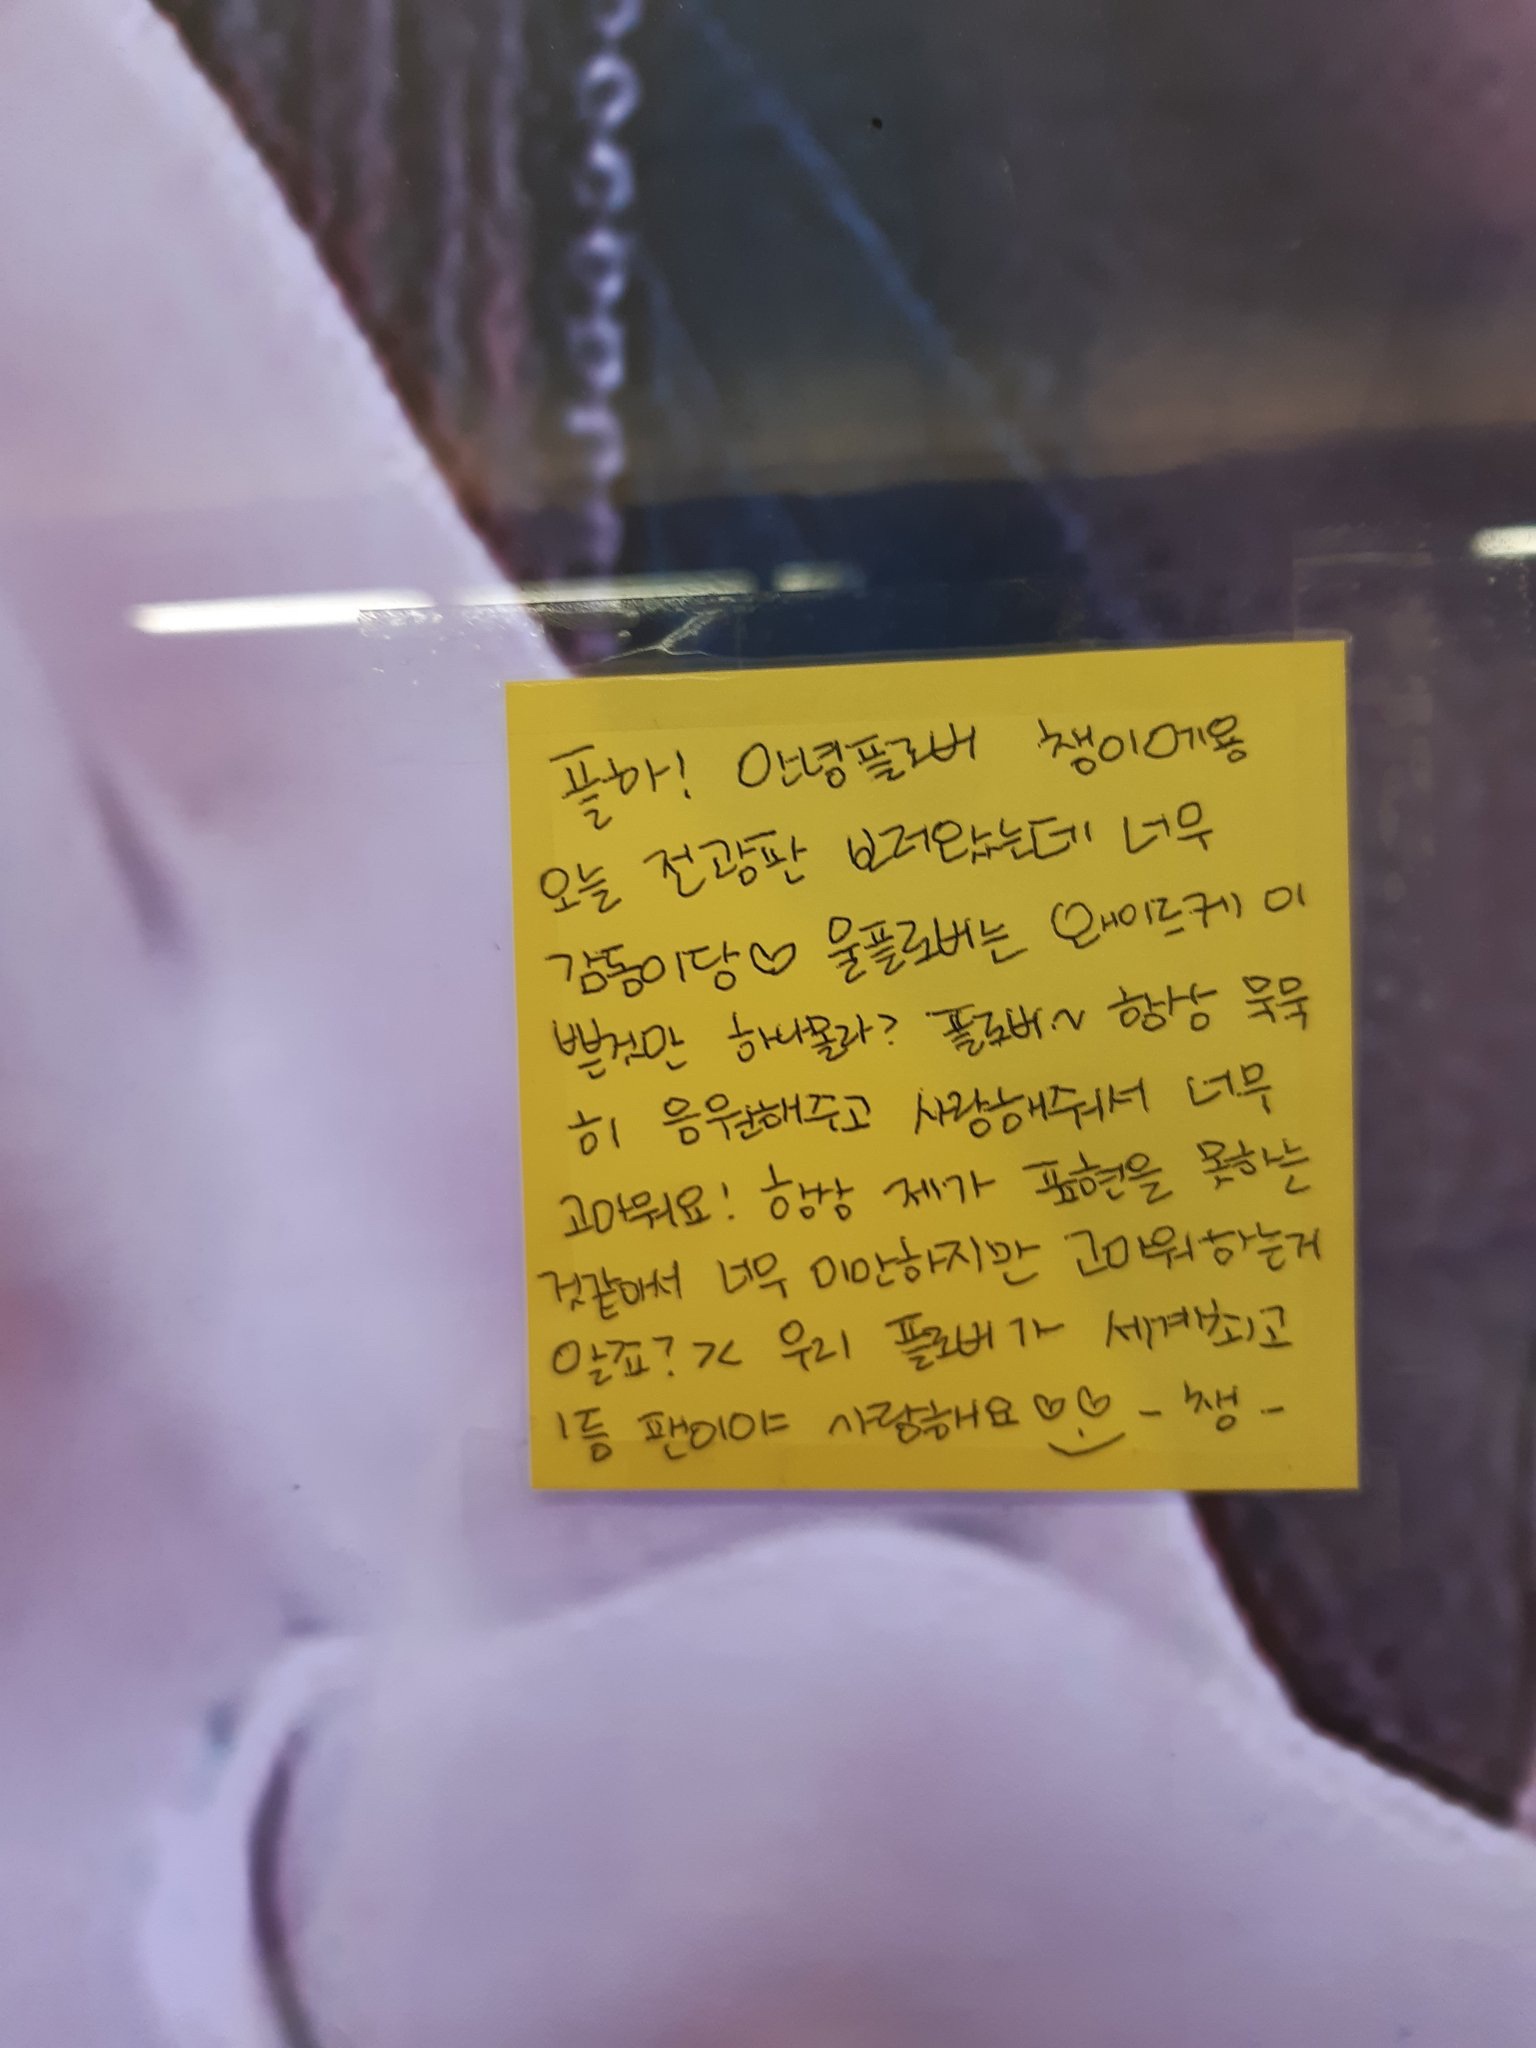 플하! 안녕플로버 챙이에용
오늘 전광판 보러왔는데 너무
감동이당♡ 울플로버는 왜이르케 이
쁜것만 하나몰라? 플로버~ 항상 묵묵
히 응원해주고 사랑해줘서 너무
고마워요! 항상 제가 표현을 못하는
것같아서 너무 미안하지만 고마워하는거
알죠? >< 우리 플로버가 세계최고
1등 팬이야 사랑해요♡♡ - 챙 -